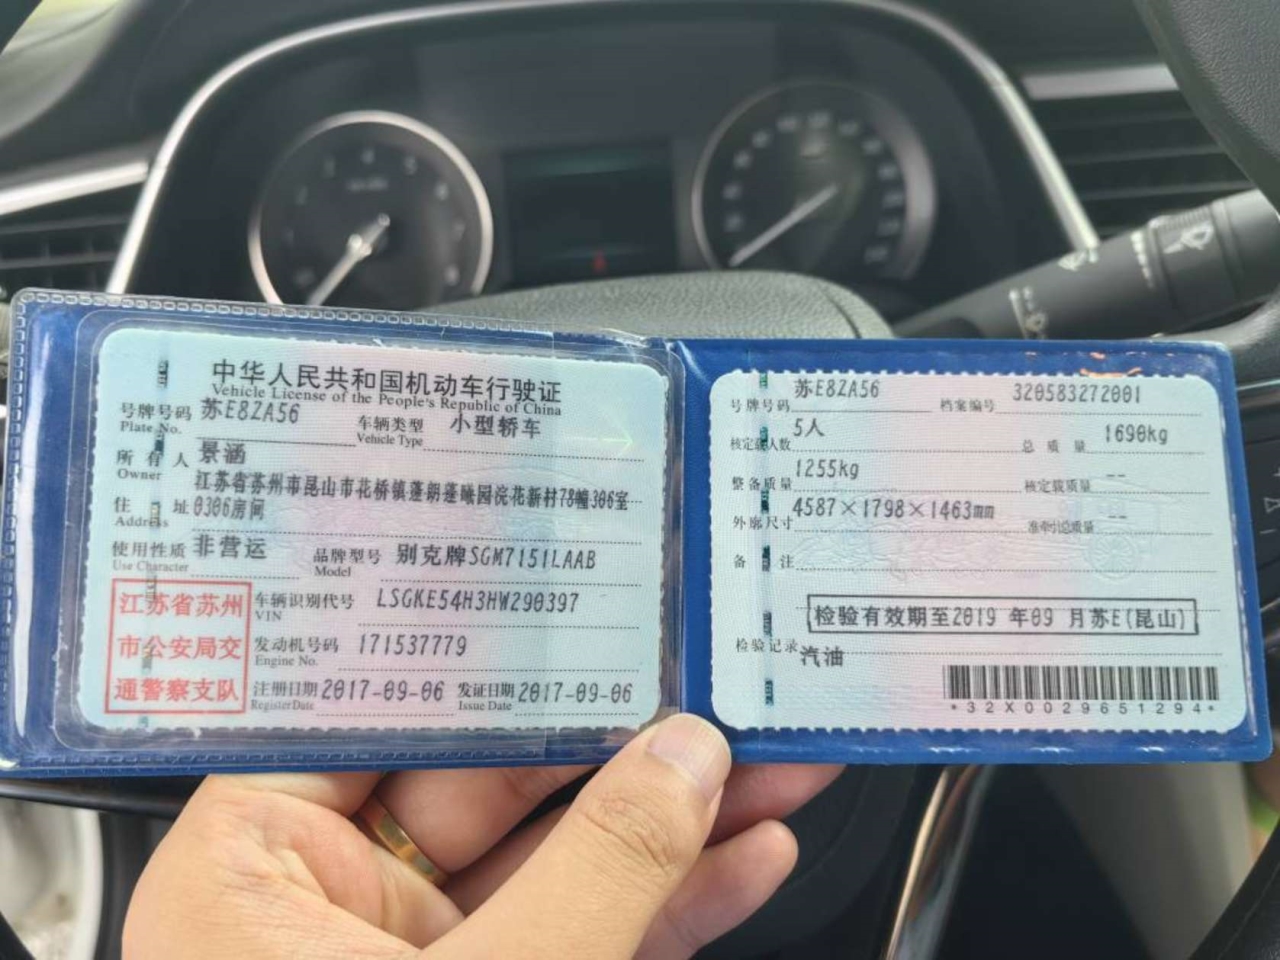 中华人民共和国机动车行驶证
Vehicle License of the People's Republic of China
号牌号码 苏E8ZA56 车辆类型 小型轿车
Plate No. Vehicle Type
所有人 景涵
Owner
住址 江苏省苏州市昆山市花桥镇蓬朗蓬曦园浣花新村78幢306室
0306房间
Address
使用性质 非营运 品牌型号 别克牌SGM7151LAAB
Use Character Model
江苏省苏州
市公安局交
通警察支队
车辆识别代号 LSGKE54H3HW290397
VIN
发动机号码 171537779
Engine No.
注册日期 2017-09-06 发证日期 2017-09-06
Register Date Issue Date
号牌号码 苏E8ZA56 档案编号 320583272001
核定载人数 5人 总质量 1690kg
整备质量 1255kg 核定载质量 --
外廓尺寸 4587×1798×1463mm 准牵引总质量 --
备注
检验有效期至2019 年09 月苏E(昆山)
检验记录
汽油
*32X0029651294*